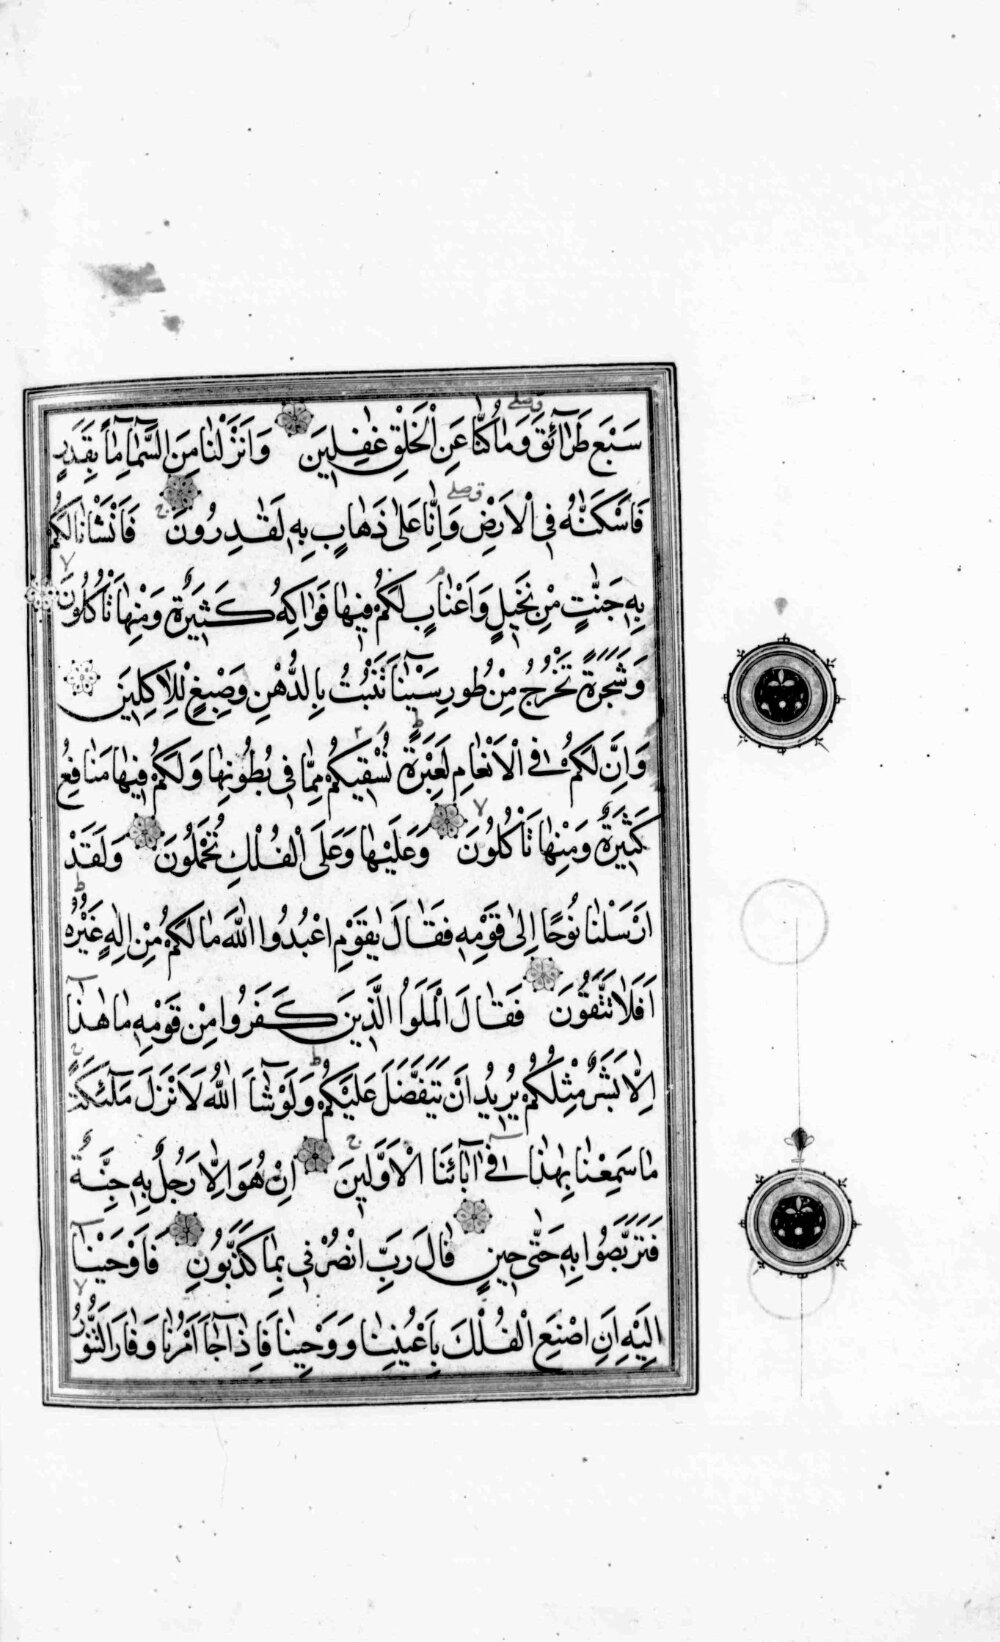 سَبْعَ طَرَآئِقَ وَمَا كُنَّا عَنِ الْخَلْقِ غٰفِلِينَ وَاَنْزَلْنَا مِنَ السَّمَآءِ مَآءً بِقَدَرٍ
فَاَسْكَنّٰهُ فِي الْاَرْضِ وَاِنَّا عَلٰى ذَهَابٍ بِهِ لَقٰدِرُونَ فَاَنْشَاْنَا لَكُمْ
بِهِ جَنّٰتٍ مِنْ نَخِيلٍ وَاَعْنَابٍ لَكُمْ فِيهَا فَوَاكِهُ كَثِيرَةٌ وَمِنْهَا تَاْكُلُونَ
وَشَجَرَةً تَخْرُجُ مِنْ طُورِ سَيْنَآءَ تَنْبُتُ بِالدُّهْنِ وَصِبْغٍ لِلْاٰكِلِينَ
وَاِنَّ لَكُمْ فِي الْاَنْعَامِ لَعِبْرَةً نُسْقِيكُمْ مِمَّا فِي بُطُونِهَا وَلَكُمْ فِيهَا مَنَافِعُ
كَثِيرَةٌ وَمِنْهَا تَاْكُلُونَ وَعَلَيْهَا وَعَلَى الْفُلْكِ تُحْمَلُونَ وَلَقَدْ
اَرْسَلْنَا نُوحًا اِلٰى قَوْمِهِ فَقَالَ يٰقَوْمِ اعْبُدُوا اللّٰهَ مَا لَكُمْ مِنْ اِلٰهٍ غَيْرُهُ
اَفَلَا تَتَّقُونَ فَقَالَ الْمَلَؤُا الَّذِينَ كَفَرُوا مِنْ قَوْمِهِ مَا هٰذَآ
اِلَّا بَشَرٌ مِثْلُكُمْ يُرِيدُ اَنْ يَتَفَضَّلَ عَلَيْكُمْ وَلَوْ شَآءَ اللّٰهُ لَاَنْزَلَ مَلٰٓئِكَةً
مَا سَمِعْنَا بِهٰذَا فِيٓ اٰبَآئِنَا الْاَوَّلِينَ اِنْ هُوَ اِلَّا رَجُلٌ بِهِ جِنَّةٌ
فَتَرَبَّصُوا بِهِ حَتّٰى حِينٍ قَالَ رَبِّ انْصُرْنِي بِمَا كَذَّبُونِ فَاَوْحَيْنَآ
اِلَيْهِ اَنِ اصْنَعِ الْفُلْكَ بِاَعْيُنِنَا وَوَحْيِنَا فَاِذَا جَآءَ اَمْرُنَا وَفَارَ التَّنُّورُ